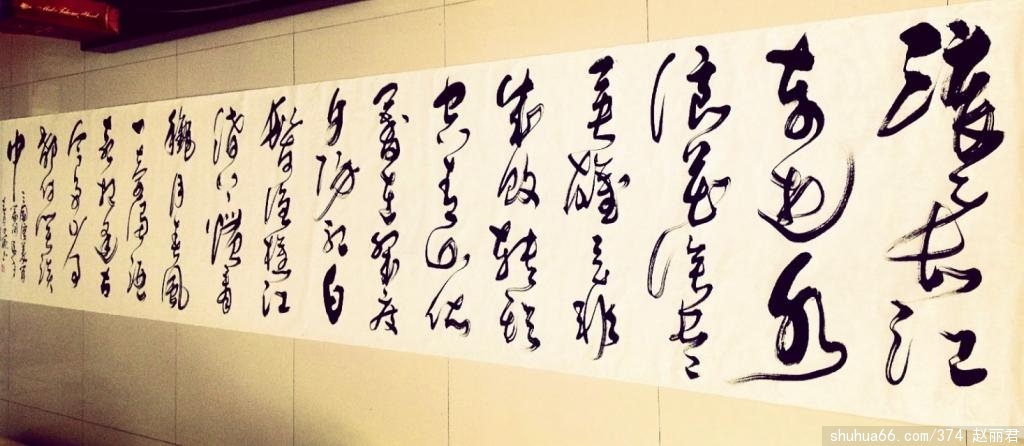 滚滚长江
东逝水
浪花淘尽
英雄是非
成败转头
空青山依
旧在几度
夕阳红白
发渔樵江
渚上惯看
秋月春风
一壶浊酒
喜相逢古
今多少事
都付笑谈
中
shuhua66.com/374 赵丽君